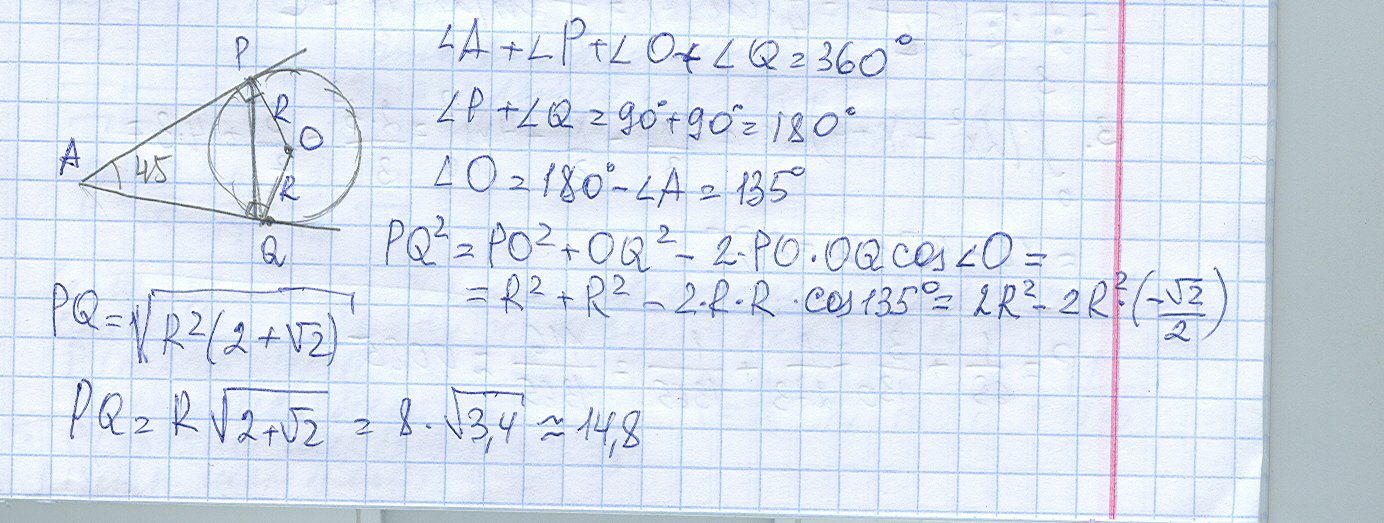 P
R
O
A
45
R
Q
∠A + ∠P + ∠O + ∠Q = 360°
∠P + ∠Q = 90° + 90° = 180°
∠O = 180° - ∠A = 135°
PQ² = PO² + OQ² - 2·PO·OQ cos∠O =
= R² + R² - 2·R·R·cos135° = 2R² - 2R²·(-√2/2)
PQ = √(R²(2+√2))
PQ = R√(2+√2) = 8·√3,4 ≈ 14,8